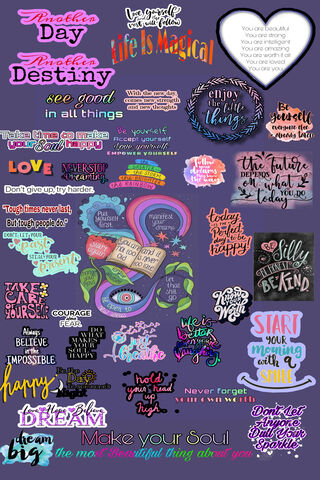 Another
Day
Another
Destiny
Love yourself
Life Is Magical
You are beautiful
You are strong
You are intelligent
You are amazing
You are worth it all
You are loved
You are you
see good
in all things
With the new day
comes new strength
and new thoughts
enjoy
the little
things
Be
Yourself
everyone else
already taken
Take time to make
your Soul happy
Be yourself
Accept yourself
Love yourself
EMPOWER YOURSELF
LOVE
NEVER STOP
Dreaming
Don't give up, try harder.
follow
your
dreams
the future
DEPENDS
ON what
you DO
today
"Tough times never last,
But tough people do."
DON'T LET YOUR
past
STEAL YOUR
present
Put
yourself
first
manifest
your
dreams
Let
that shit
go
today
is the
perfect
day to be
happy!
Silly
BE KIND
TAKE
CARE OF
YOURSELF
Know
Your
Worth
COURAGE
FEAR
Always
BELIEVE
in the
IMPOSSIBLE
DO
WHAT
MAKES
YOUR
SOUL
HAPPY
Just
breathe
life is
better
when
you're
START
YOUR
morning
with a
SMILE
happy
hold
your head
up
high
Never forget
your own worth
DREAM
Don't Let
Anyone
Dull Your
Sparkle
dream
big
Make your Soul
the most Beautiful thing about you